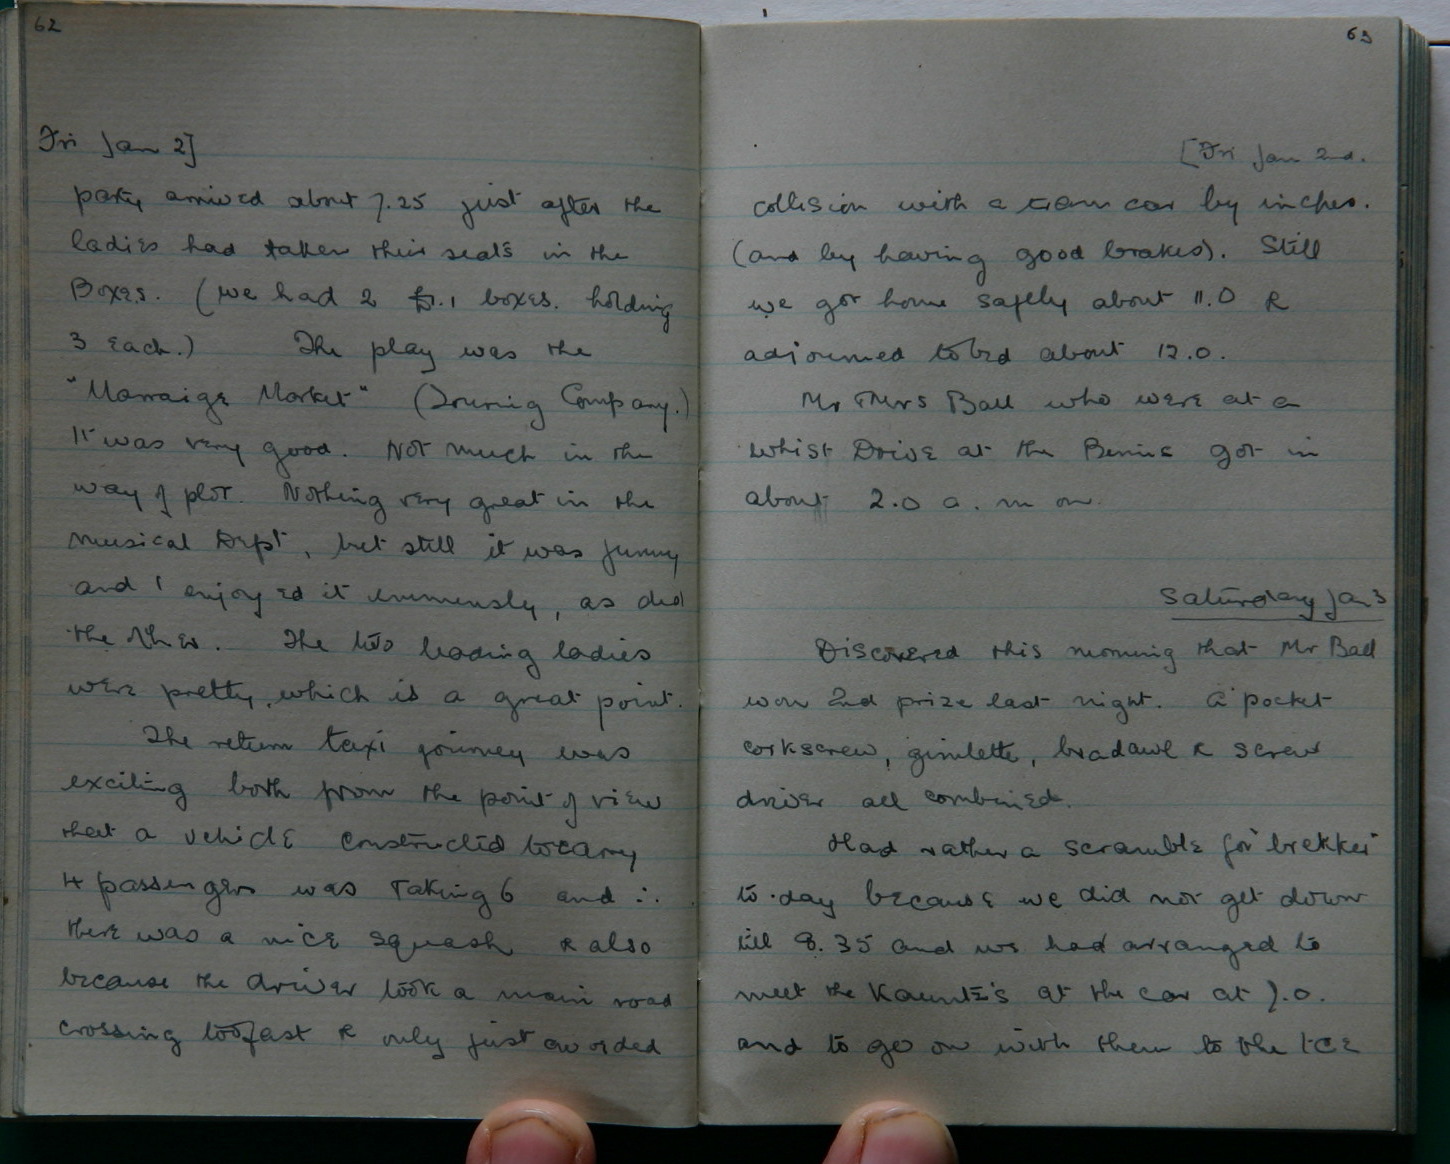 62
Fri Jan 2]
party arrived about 7.25 just after the
ladies had taken their seats in the
Boxes. (we had 2 No.1 boxes. holding
3 each.) The play was the
"Marraige Market" (Touring Company.)
It was very good. Not much in the
way of plot. Nothing very great in the
musical Dept, but still it was funny
and I enjoyed it immensly, as did
the others. The two leading ladies
were pretty, which is a great point.
The return taxi journey was
exciting both from the point of view
that a vehicle constructed to carry
4 passengers was taking 6 and ∴
there was a nice squash & also
because the driver took a main road
crossing too fast & only just avoided
63
[Fri Jan 2nd.
collision with a tram car by inches.
(and by having good brakes). Still
we got home safely about 11.0 &
adjourned to bed about 12.0.
Mr & Mrs Ball who were at a
Whist Drive at the got in
about 2.0 a.m.
Saturday Jan 3
Discovered this morning that Mr Ball
won 2nd prize last night. A pocket
corkscrew, gimlette, bradawl & screw
driver all combined.
Had rather a scramble for 'brekker'
to-day because we did not get down
till 8.35 and we had arranged to
meet the at the car at 9.0.
and to go on with them to the ice